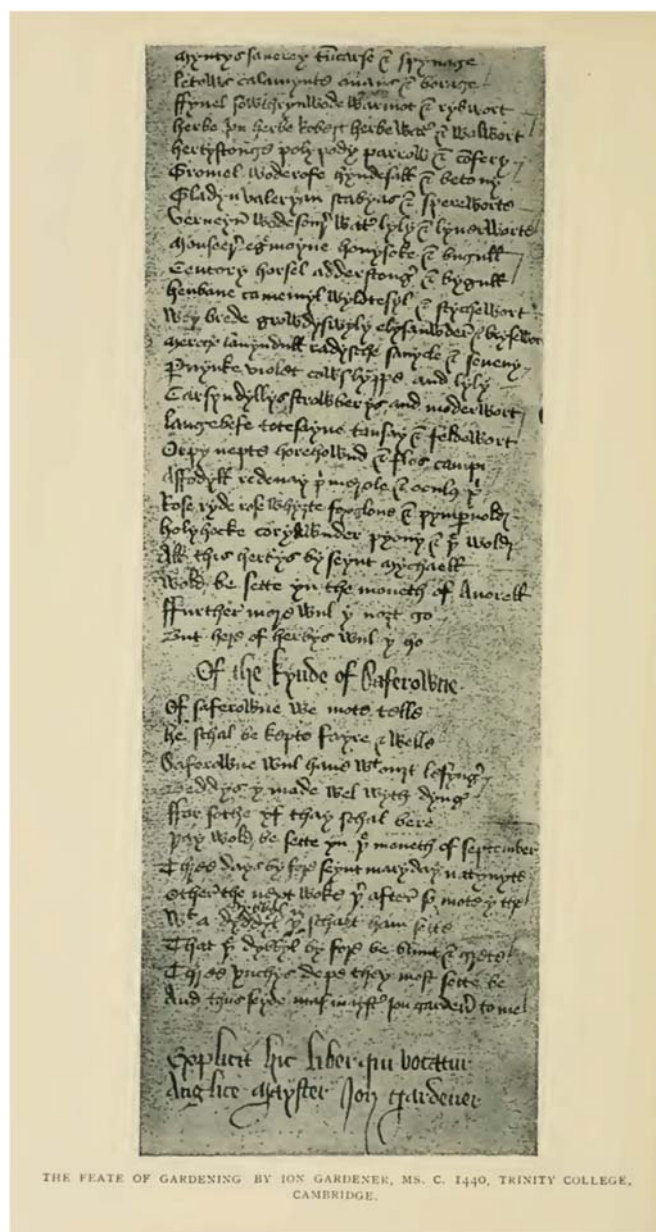 Myntys sauerey tūcarse & spynage
letows calamynte auans & borage
ffynel sowthrynwode warmot & rybwort
herbe jon herbe Robert herbe wat' & walwort
hertystonge polypody parrow & cōfery
Gromel woderofe hyndesall & betony
Gladyn valeryan scabyas & sperewort
Verueyn wodesour wat' lyly & lyuerworte
Mouseer egrmoyne honysoke & bugull
Centory horsel adderstong & bygull
henbane camemyl wyldtesyl & stychewort
Weybrede growdyswyly elysawnder & brysewort
Merche lauyndull radysche sanycle & seueny
Pervynke violet cowslyppe and lyly
Carsyndyllys strowberys and moderwort
langebefe totesayne tansay & feldewort
Orpy nepte horehownd & flos campi
Affodyll redenay prīmerole & oculus xp̄i
Rose ryde rose whyte foxgloue & pympernold
holyhocke coryawnder pyony
All this herbys by seynt Mychaell
Wold be sette yn the moneth of Auerell
ffurther more wul y nozt go
But here of herbys wul y ho
Of the kynde of Saferowne
Of saferowne we mote telle
he schal be kepte fayre & welle
Saferowne wul haue wt ouzt lesyng
Beddys y made wel wyth dyng
ffor sothe yf thay schal bere
þay wold be sette yn þe moneth of september
Three days by fore seynt mary day natyuyte
other the next woke þer after so mote y the
wt a dybbyl þu schalt ham sette
That þe dybbyl by fore be blunt & grete
Three ynchys depe they most sette be
And thus seyde mayster Jon gardener to me
Explicit hic liber qui vocatur
Anglice Mayster Jon Gardener
THE FEATE OF GARDENING BY ION GARDENER, MS. C. 1440, TRINITY COLLEGE,
CAMBRIDGE.